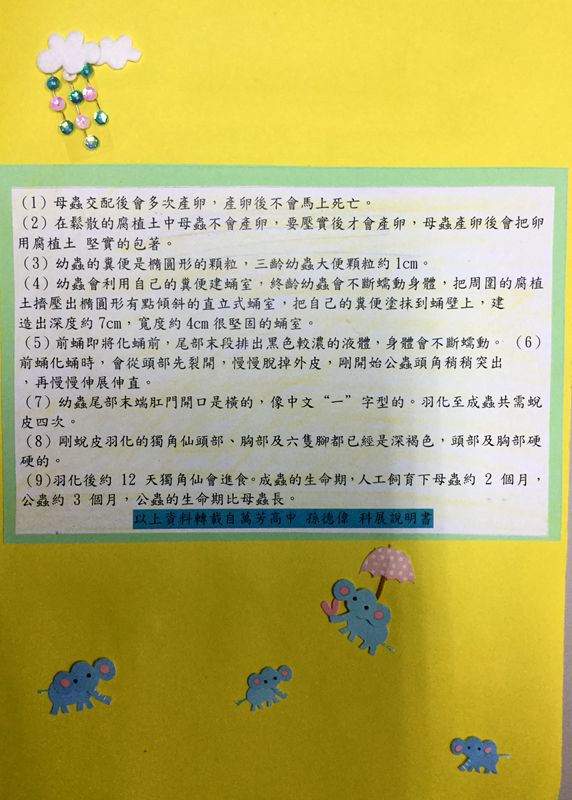 (1) 母蟲交配後會多次產卵，產卵後不會馬上死亡。
(2) 在鬆散的腐植土中母蟲不會產卵，要壓實後才會產卵，母蟲產卵後會把卵
用腐植土 堅實的包著。
(3) 幼蟲的糞便是橢圓形的顆粒，三齡幼蟲大便顆粒約1cm。
(4) 幼蟲會利用自己的糞便建蛹室，終齡幼蟲會不斷蠕動身體，把周圍的腐植
土擠壓出橢圓形有點傾斜的直立式蛹室，把自己的糞便塗抹到蛹壁上，建
造出深度約7cm，寬度約4cm很堅固的蛹室。
(5) 前蛹即將化蛹前，尾部末段排出黑色較濃的液體，身體會不斷蠕動。 (6)
前蛹化蛹時，會從頭部先裂開，慢慢脫掉外皮，剛開始公蟲頭角稍稍突出
，再慢慢伸展伸直。
(7) 幼蟲尾部末端肛門開口是橫的，像中文“一”字型的。羽化至成蟲共需蛻
皮四次。
(8) 剛蛻皮羽化的獨角仙頭部、胸部及六隻腳都已經是深褐色，頭部及胸部硬
硬的。
(9)羽化後約 12 天獨角仙會進食。成蟲的生命期，人工飼育下母蟲約 2 個月，
公蟲約 3 個月，公蟲的生命期比母蟲長。
以上資料轉載自萬芳高中 孫德偉 科展說明書